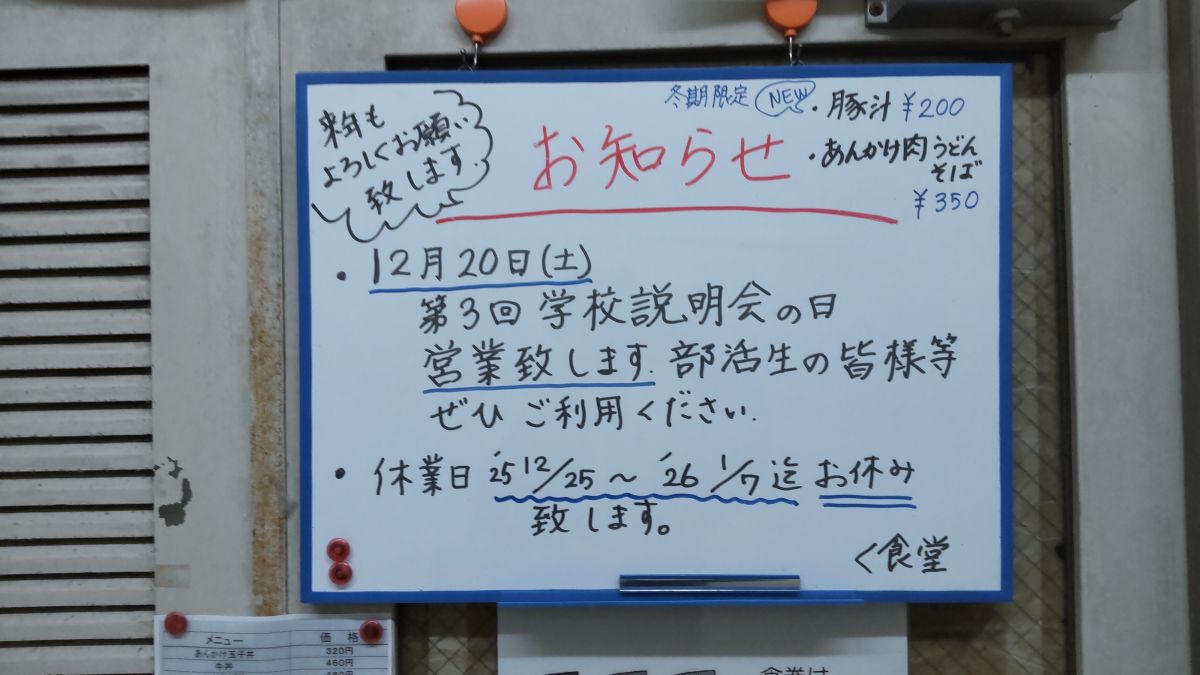 来年も
よろしくお願い
致します.
お知らせ
冬期限定 NEW ・豚汁 ¥200
・あんかけ肉うどん
そば
¥350
・12月20日(土)
第3回 学校説明会の日
営業致します. 部活生の皆様等
ぜひ ご利用ください.
・休業日 '25 12/25〜'26 1/7迄 お休み
致します。
く食堂
メニュー 価格
あんかけ玉子丼 320円
牛丼 460円